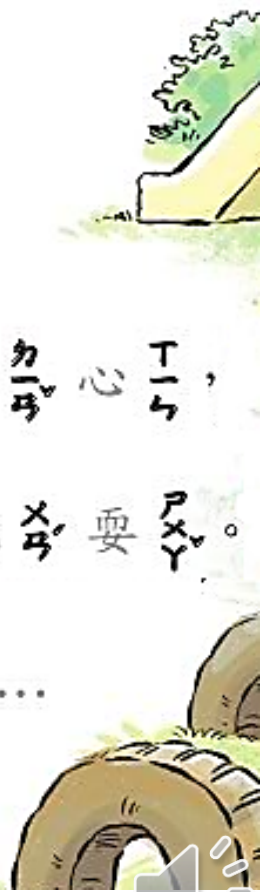 ㄉㄧㄢˇ 心 ㄒㄧㄣ ，
ㄨㄢˊ 耍 ㄕㄨㄚˇ 。
…